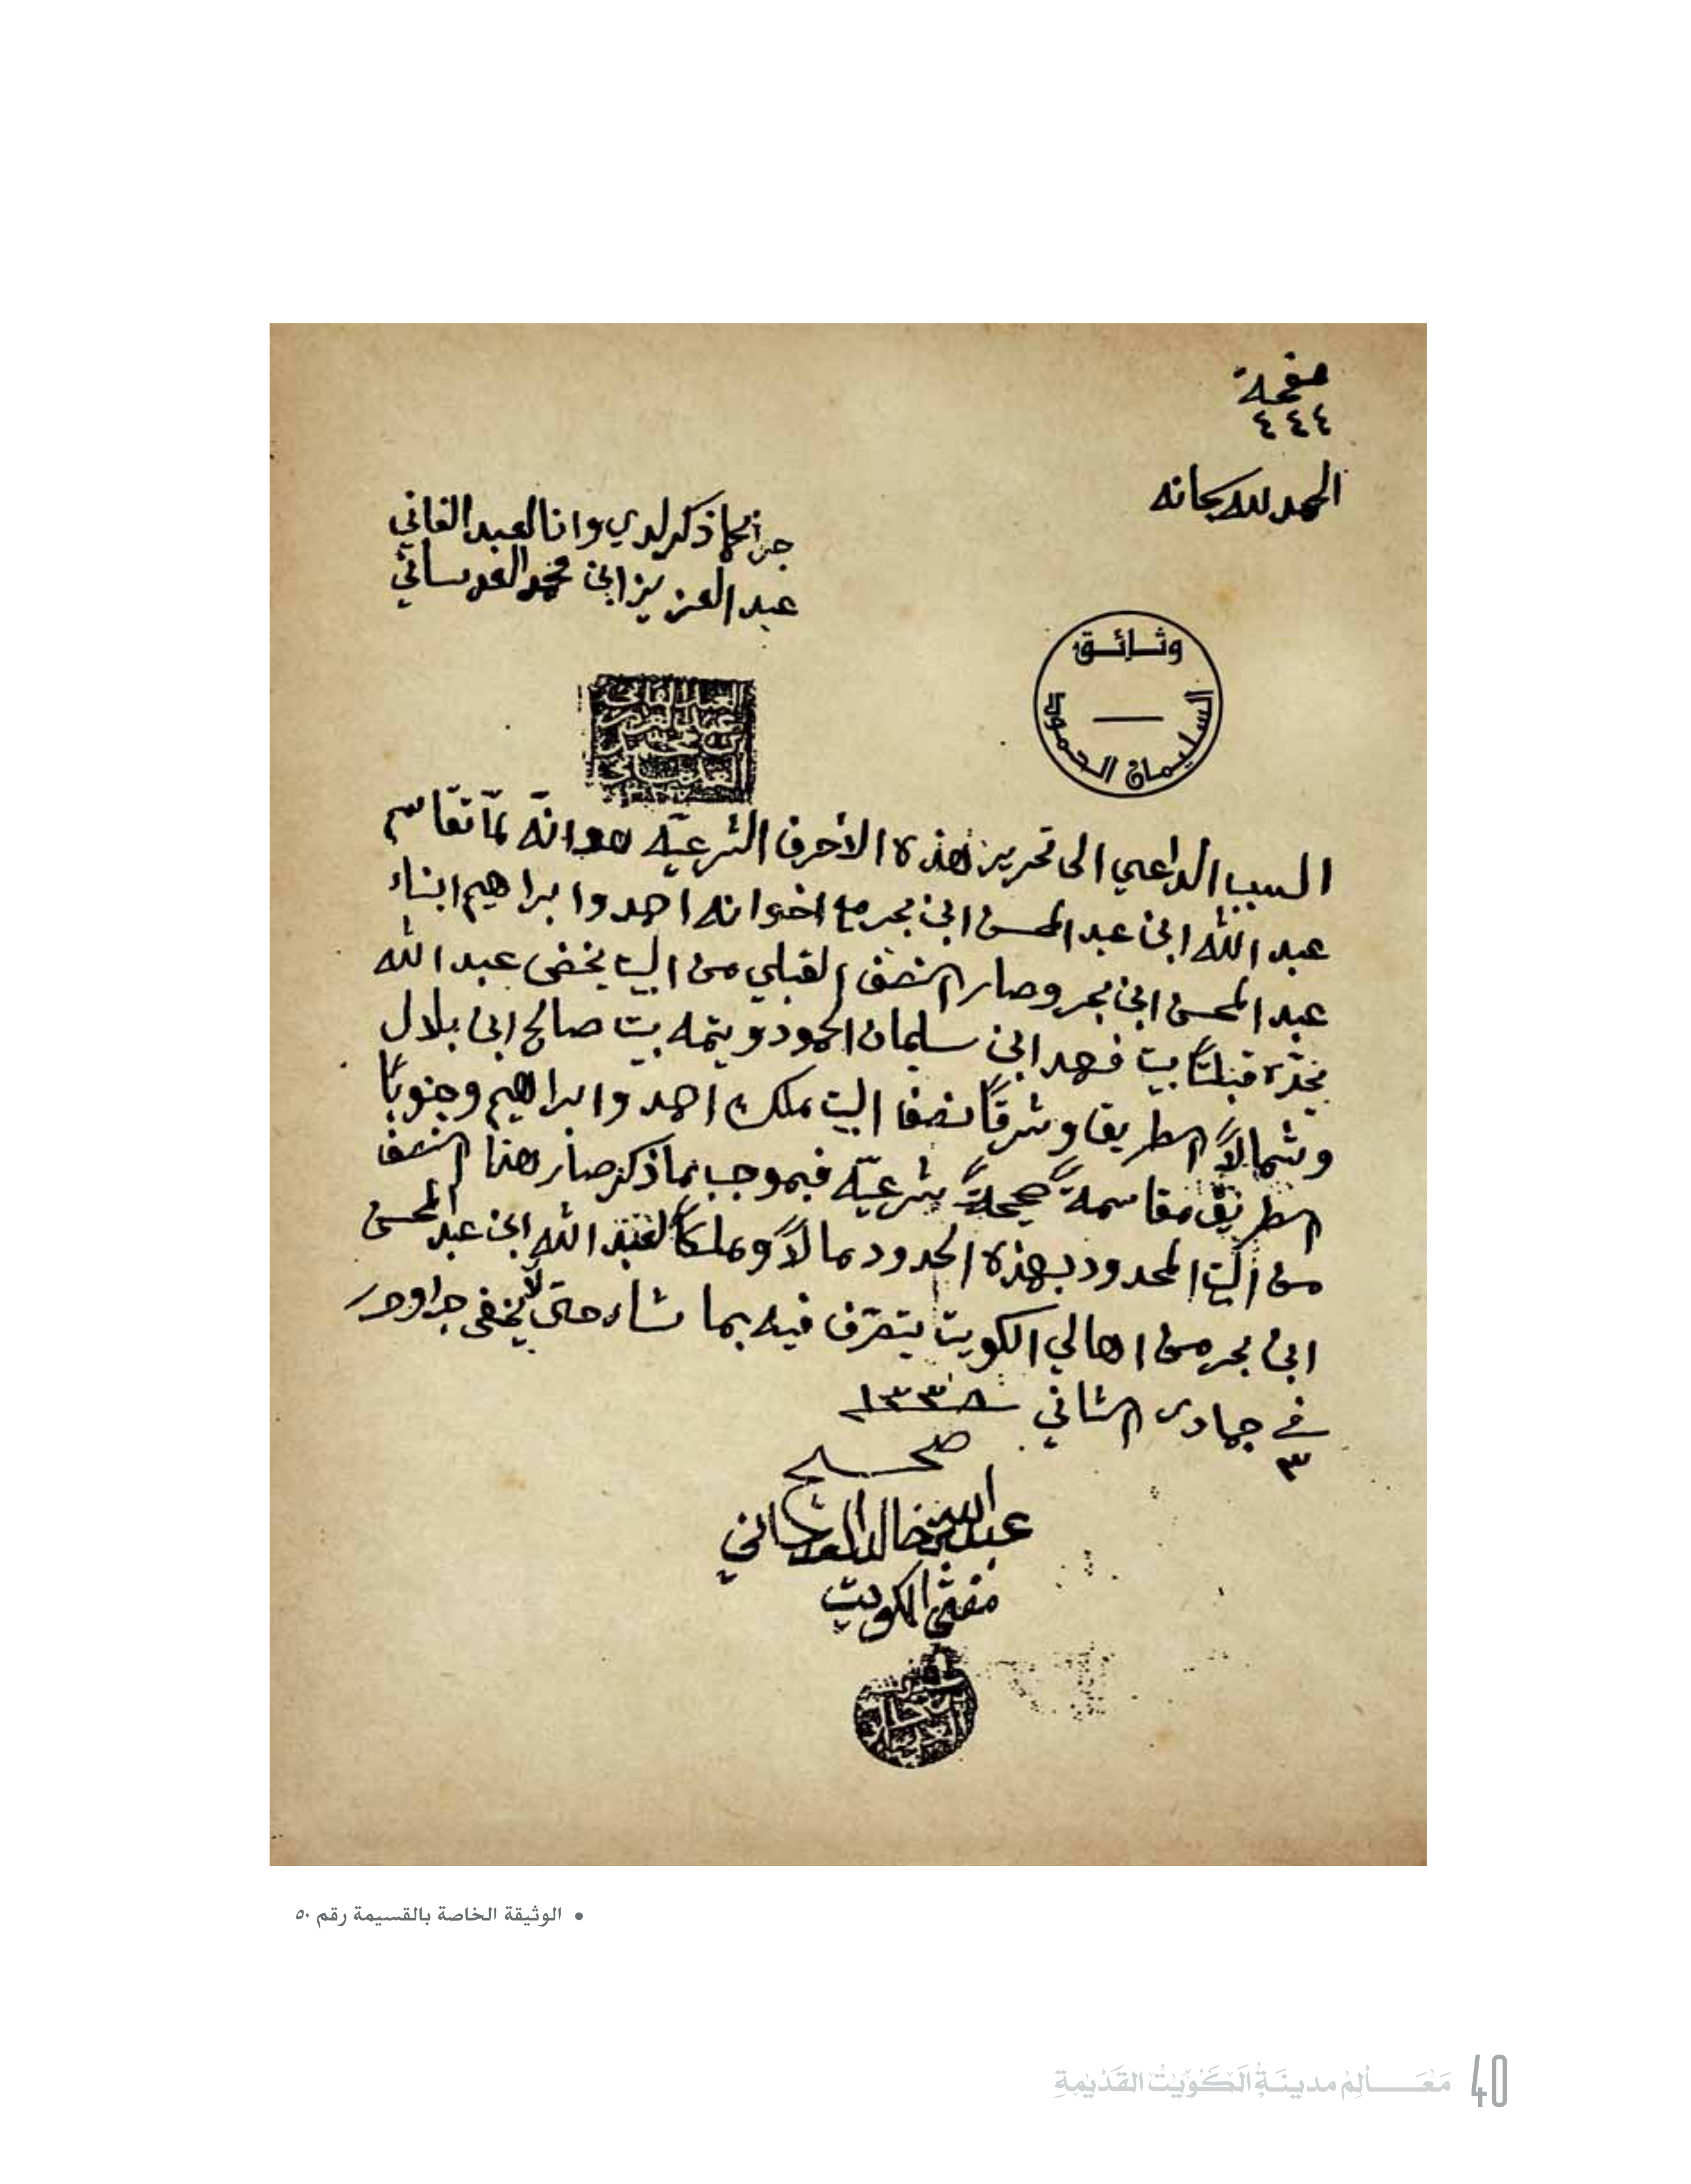 صفحة
٤٤٤
الحمد لله سبحانه
جرا كما ذكر لدي وانا العبد الفاني
عبد العزيز ابن محمد العدساني
وثائق
السليمان الحمود
السبب الداعي الى تحرير هذه الأحرف الشرعيّه هو انّه لمّا تقاسم
عبد الله ابن عبد المحسن ابن بحر مع اخوانه احمد وابراهيم ابناء
عبد المحسن ابن بحر وصار النصف القبلي من البيت يخص عبد الله
يحدّه قبلتاً بيت فهد ابن سليمان الحمود ويتمه بيت صالح ابن بلال
وشمالاً الطريق وشرقاً نصف البيت ملك احمد وابراهيم وجنوباً
الطريق مقاسمةً صحيحةً شرعيّه فبموجب ما ذكر صار هذا النصف
من البيت المحدود بهذه الحدود مالاً وملكاً لعبد الله ابن عبد المحسن
ابن بحر من اهالي الكويت يتصرّف فيه بما شاء حتى لا يخفى جرا وحرر
في ٣ جمادى الثاني ١٣٣٨
صحيح
عبد الله بن خالد العدساني
مفتي الكويت
• الوثيقة الخاصة بالقسيمة رقم ٥٠
مَعَالِمُ مدينَةِ الكُوَيْت القَدِيمةِ 40